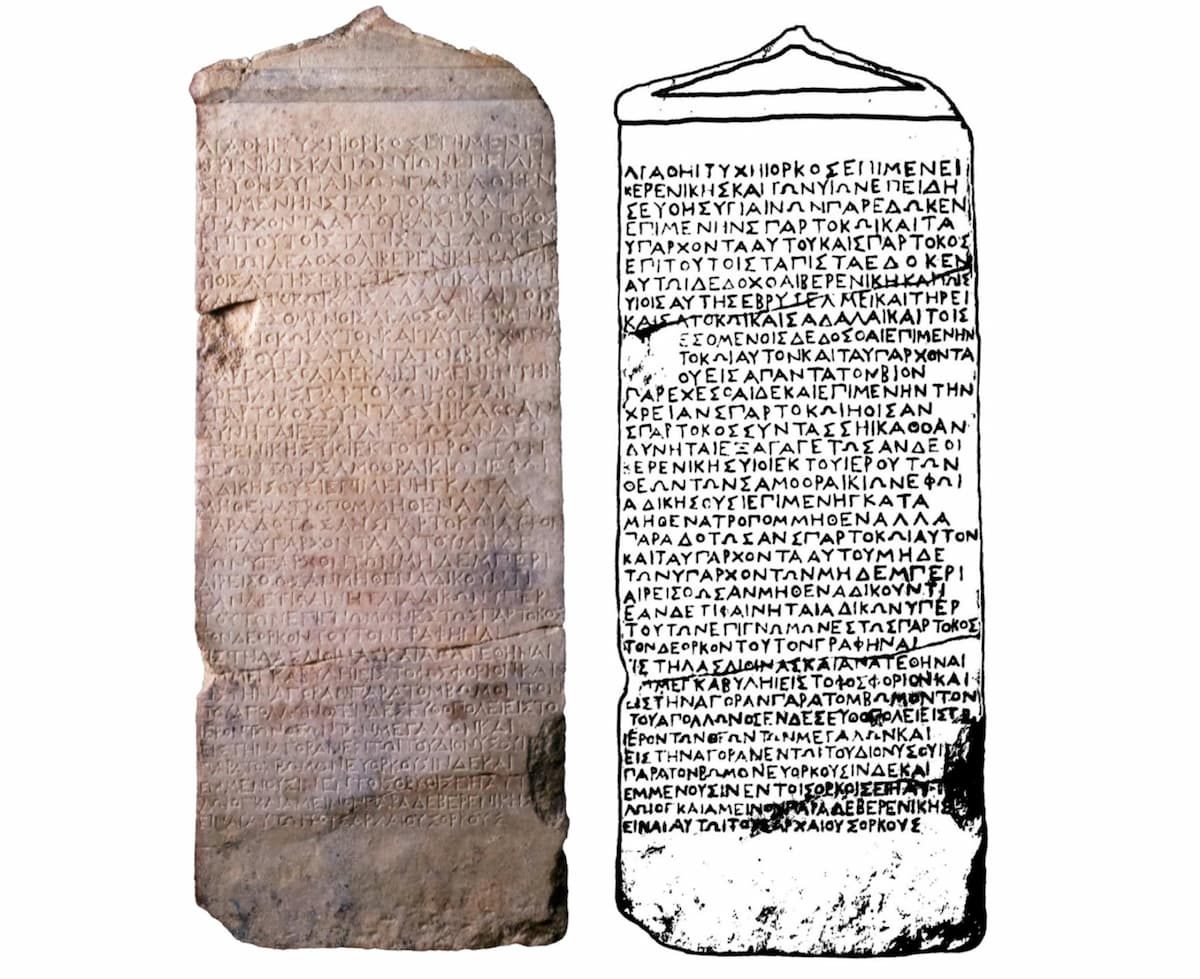 ΑΓΑΘΗΙΤΥΧΗΙΟΡΚΟΣΕΠΙΜΕΝΕΙ
ΒΕΡΕΝΙΚΗΣΚΑΙΤΩΝΥΙΩΝΕΠΕΙΔΗ
ΣΕΥΘΗΣΥΓΙΑΙΝΩΝΠΑΡΕΔΩΚΕΝ
ΕΠΙΜΕΝΗΝΣΠΑΡΤΟΚΩΙΚΑΙΤΑ
ΥΠΑΡΧΟΝΤΑΑΥΤΟΥΚΑΙΣΠΑΡΤΟΚΟΣ
ΕΠΙΤΟΥΤΟΙΣΤΑΠΙΣΤΑΕΔΟΚΕΝ
ΑΥΤΩΙΔΕΔΟΧΘΑΙΒΕΡΕΝΙΚΗΚΑΙΤΟΙΣ
ΥΙΟΙΣΑΥΤΗΣΕΒΡΥΖΕΛΜΕΙΚΑΙΤΗΡΕΙ
ΚΑΙΣΑΤΟΚΩΙΚΑΙΣΑΔΑΛΑΙΚΑΙΤΟΙΣ
ΕΣΟΜΕΝΟΙΣΔΕΔΟΣΘΑΙΕΠΙΜΕΝΗΝ
ΤΟΚΩΙΑΥΤΟΝΚΑΙΤΑΥΠΑΡΧΟΝΤΑ
ΟΥΕΙΣΑΠΑΝΤΑΤΟΝΒΙΟΝ
ΠΑΡΕΧΕΣΘΑΙΔΕΚΑΙΕΠΙΜΕΝΗΝΤΗΝ
ΧΡΕΙΑΝΣΠΑΡΤΟΚΩΙΗΟΙΣΑΝ
ΣΠΑΡΤΟΚΟΣΣΥΝΤΑΣΣΗΙΚΑΘΟΑΝ
ΔΥΝΗΤΑΙΕΞΑΓΑΓΕΤΩΣΑΝΔΕΟΙ
ΒΕΡΕΝΙΚΗΣΥΙΟΙΕΚΤΟΥΙΕΡΟΥΤΩΝ
ΘΕΩΝΤΩΝΣΑΜΟΘΡΑΙΚΙΩΝΕΦΩΙ
ΑΔΙΚΗΣΟΥΣΙΕΠΙΜΕΝΗΓΚΑΤΑ
ΜΗΘΕΝΑΤΡΟΠΟΜΜΗΘΕΝΑΛΛΑ
ΠΑΡΑΔΟΤΩΣΑΝΣΠΑΡΤΟΚΩΙΑΥΤΟΝ
ΚΑΙΤΑΥΠΑΡΧΟΝΤΑΑΥΤΟΥΜΗΔΕ
ΤΩΝΥΠΑΡΧΟΝΤΩΝΜΗΔΕΜΠΕΡΙ
ΑΙΡΕΙΣΘΩΣΑΝΜΗΘΕΝΑΔΙΚΟΥΝΤΙ
ΕΑΝΔΕΤΙΦΑΙΝΗΤΑΙΑΔΙΚΩΝΥΠΕΡ
ΤΟΥΤΩΝΕΠΙΓΝΩΜΩΝΕΣΤΩΣΠΑΡΤΟΚΟΣ
ΤΟΝΔΕΟΡΚΟΝΤΟΥΤΟΝΓΡΑΦΗΝΑΙ
ΕΙΣΤΗΛΑΣΛΙΘΙΝΑΣΚΑΙΑΝΑΤΕΘΗΝΑΙ
ΤΗΜΕΓΚΑΒΥΛΗΙΕΙΣΤΟΦΟΣΦΟΡΙΟΝΚΑΙ
ΕΙΣΤΗΝΑΓΟΡΑΝΠΑΡΑΤΟΜΒΩΜΟΝΤΟΝ
ΤΟΥΑΠΟΛΛΩΝΟΣΕΝΔΕΣΕΥΘΟΠΟΛΕΙΕΙΣΤΟ
ΙΕΡΟΝΤΩΝΘΕΩΝΤΩΝΜΕΓΑΛΩΝΚΑΙ
ΕΙΣΤΗΝΑΓΟΡΑΝΕΝΤΩΙΤΟΥΔΙΟΝΥΣΟΥΙ
ΠΑΡΑΤΟΝΒΩΜΟΝΕΥΟΡΚΟΥΣΙΝΔΕΚΑΙ
ΕΜΜΕΝΟΥΣΙΝΕΝΤΟΙΣΟΡΚΟΙΣΕΙΗΑΥ
ΛΩΙΟΓΚΑΙΑΜΕΙΝΟΝΠΑΡΑΔΕΒΕΡΕΝΙΚΗΣ
ΕΙΝΑΙΑΥΤΩΙΤΟΥΣΑΡΧΑΙΟΥΣΟΡΚΟΥΣ